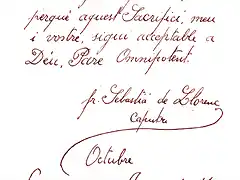 perquè aquest Sacrifici, meu
i vostre, sigui acceptable a
Déu, Pare Omnipotent.
fr. Sebastià de Llorenç
caputxí
Octubre